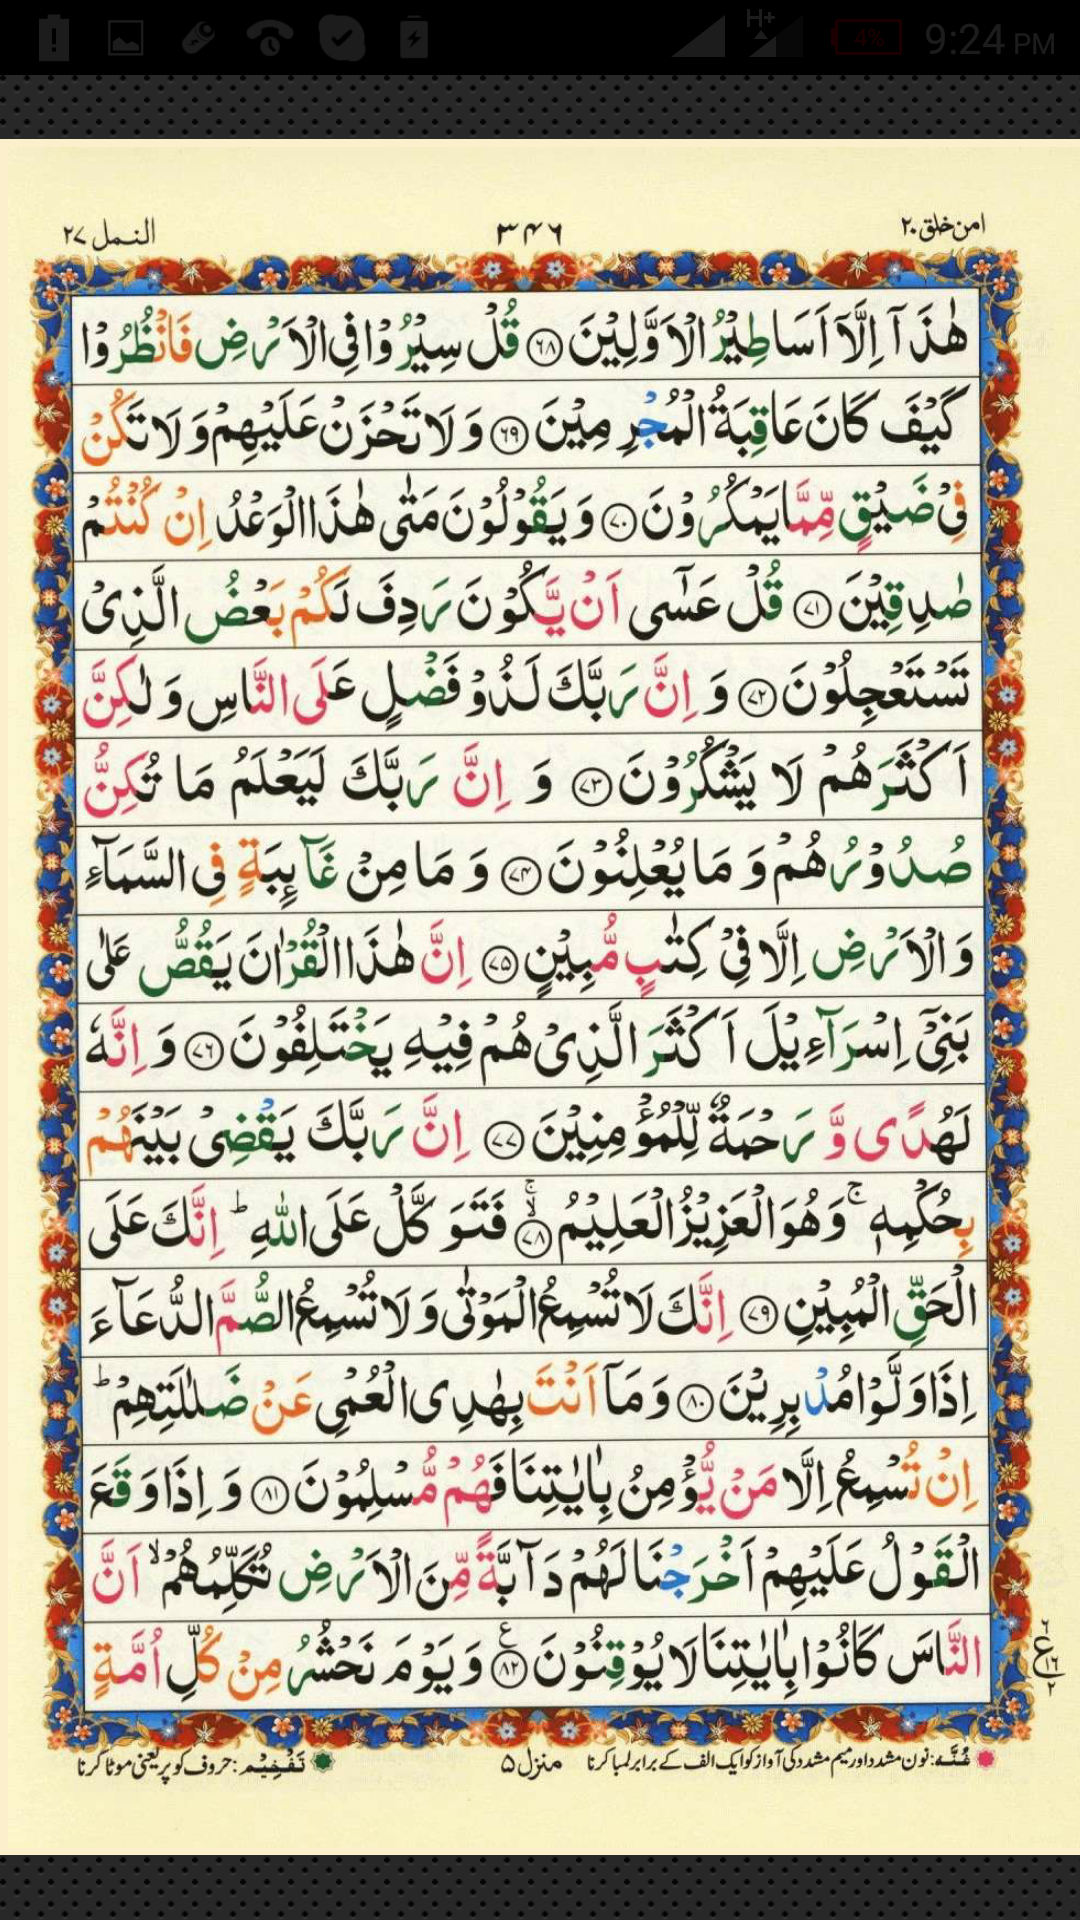 H+
4%
9:24 PM
امن خلق ۲۰
۳۴۶
النمل ۲۷
هٰذَاۤ اِلَّاۤ اَسَاطِيْرُ الْاَوَّلِيْنَ ﴿۶۸﴾ قُلْ سِيْرُوْا فِى الْاَرْضِ فَانْظُرُوْا
كَيْفَ كَانَ عَاقِبَةُ الْمُجْرِمِيْنَ ﴿۶۹﴾ وَ لَا تَحْزَنْ عَلَيْهِمْ وَ لَا تَكُنْ
فِىْ ضَيْقٍ مِّمَّا يَمْكُرُوْنَ ﴿۷۰﴾ وَ يَقُوْلُوْنَ مَتٰى هٰذَا الْوَعْدُ اِنْ كُنْتُمْ
صٰدِقِيْنَ ﴿۷۱﴾ قُلْ عَسٰٓى اَنْ يَّكُوْنَ رَدِفَ لَكُمْ بَعْضُ الَّذِىْ
تَسْتَعْجِلُوْنَ ﴿۷۲﴾ وَ اِنَّ رَبَّكَ لَذُوْ فَضْلٍ عَلَى النَّاسِ وَ لٰكِنَّ
اَكْثَرَهُمْ لَا يَشْكُرُوْنَ ﴿۷۳﴾ وَ اِنَّ رَبَّكَ لَيَعْلَمُ مَا تُكِنُّ
صُدُوْرُهُمْ وَ مَا يُعْلِنُوْنَ ﴿۷۴﴾ وَ مَا مِنْ غَآئِبَةٍ فِى السَّمَآءِ
وَ الْاَرْضِ اِلَّا فِىْ كِتٰبٍ مُّبِيْنٍ ﴿۷۵﴾ اِنَّ هٰذَا الْقُرْاٰنَ يَقُصُّ عَلٰى
بَنِىْۤ اِسْرَآءِيْلَ اَكْثَرَ الَّذِىْ هُمْ فِيْهِ يَخْتَلِفُوْنَ ﴿۷۶﴾ وَ اِنَّهٗ
لَهُدًى وَّ رَحْمَةٌ لِّلْمُؤْمِنِيْنَ ﴿۷۷﴾ اِنَّ رَبَّكَ يَقْضِىْ بَيْنَهُمْ
بِحُكْمِهٖ ۚ وَ هُوَ الْعَزِيْزُ الْعَلِيْمُ ﴿۷۸﴾ ۙۚ فَتَوَكَّلْ عَلَى اللّٰهِ ؕ اِنَّكَ عَلَى
الْحَقِّ الْمُبِيْنِ ﴿۷۹﴾ اِنَّكَ لَا تُسْمِعُ الْمَوْتٰى وَ لَا تُسْمِعُ الصُّمَّ الدُّعَآءَ
اِذَا وَلَّوْا مُدْبِرِيْنَ ﴿۸۰﴾ وَ مَاۤ اَنْتَ بِهٰدِى الْعُمْىِ عَنْ ضَلٰلَتِهِمْ ؕ
اِنْ تُسْمِعُ اِلَّا مَنْ يُّؤْمِنُ بِاٰيٰتِنَا فَهُمْ مُّسْلِمُوْنَ ﴿۸۱﴾ وَ اِذَا وَقَعَ
الْقَوْلُ عَلَيْهِمْ اَخْرَجْنَا لَهُمْ دَآبَّةً مِّنَ الْاَرْضِ تُكَلِّمُهُمْ ۙ اَنَّ
النَّاسَ كَانُوْا بِاٰيٰتِنَا لَا يُوْقِنُوْنَ ﴿۸۲﴾ ع وَ يَوْمَ نَحْشُرُ مِنْ كُلِّ اُمَّةٍ
۶
ع
۱۶
۲
غُنَّه: نون مشدد اور میم مشدد کی آواز کو ایک الف کے برابر لمبا کرنا منزل ۵ تَفْخِيْم: حروف کو پر یعنی موٹا کرنا